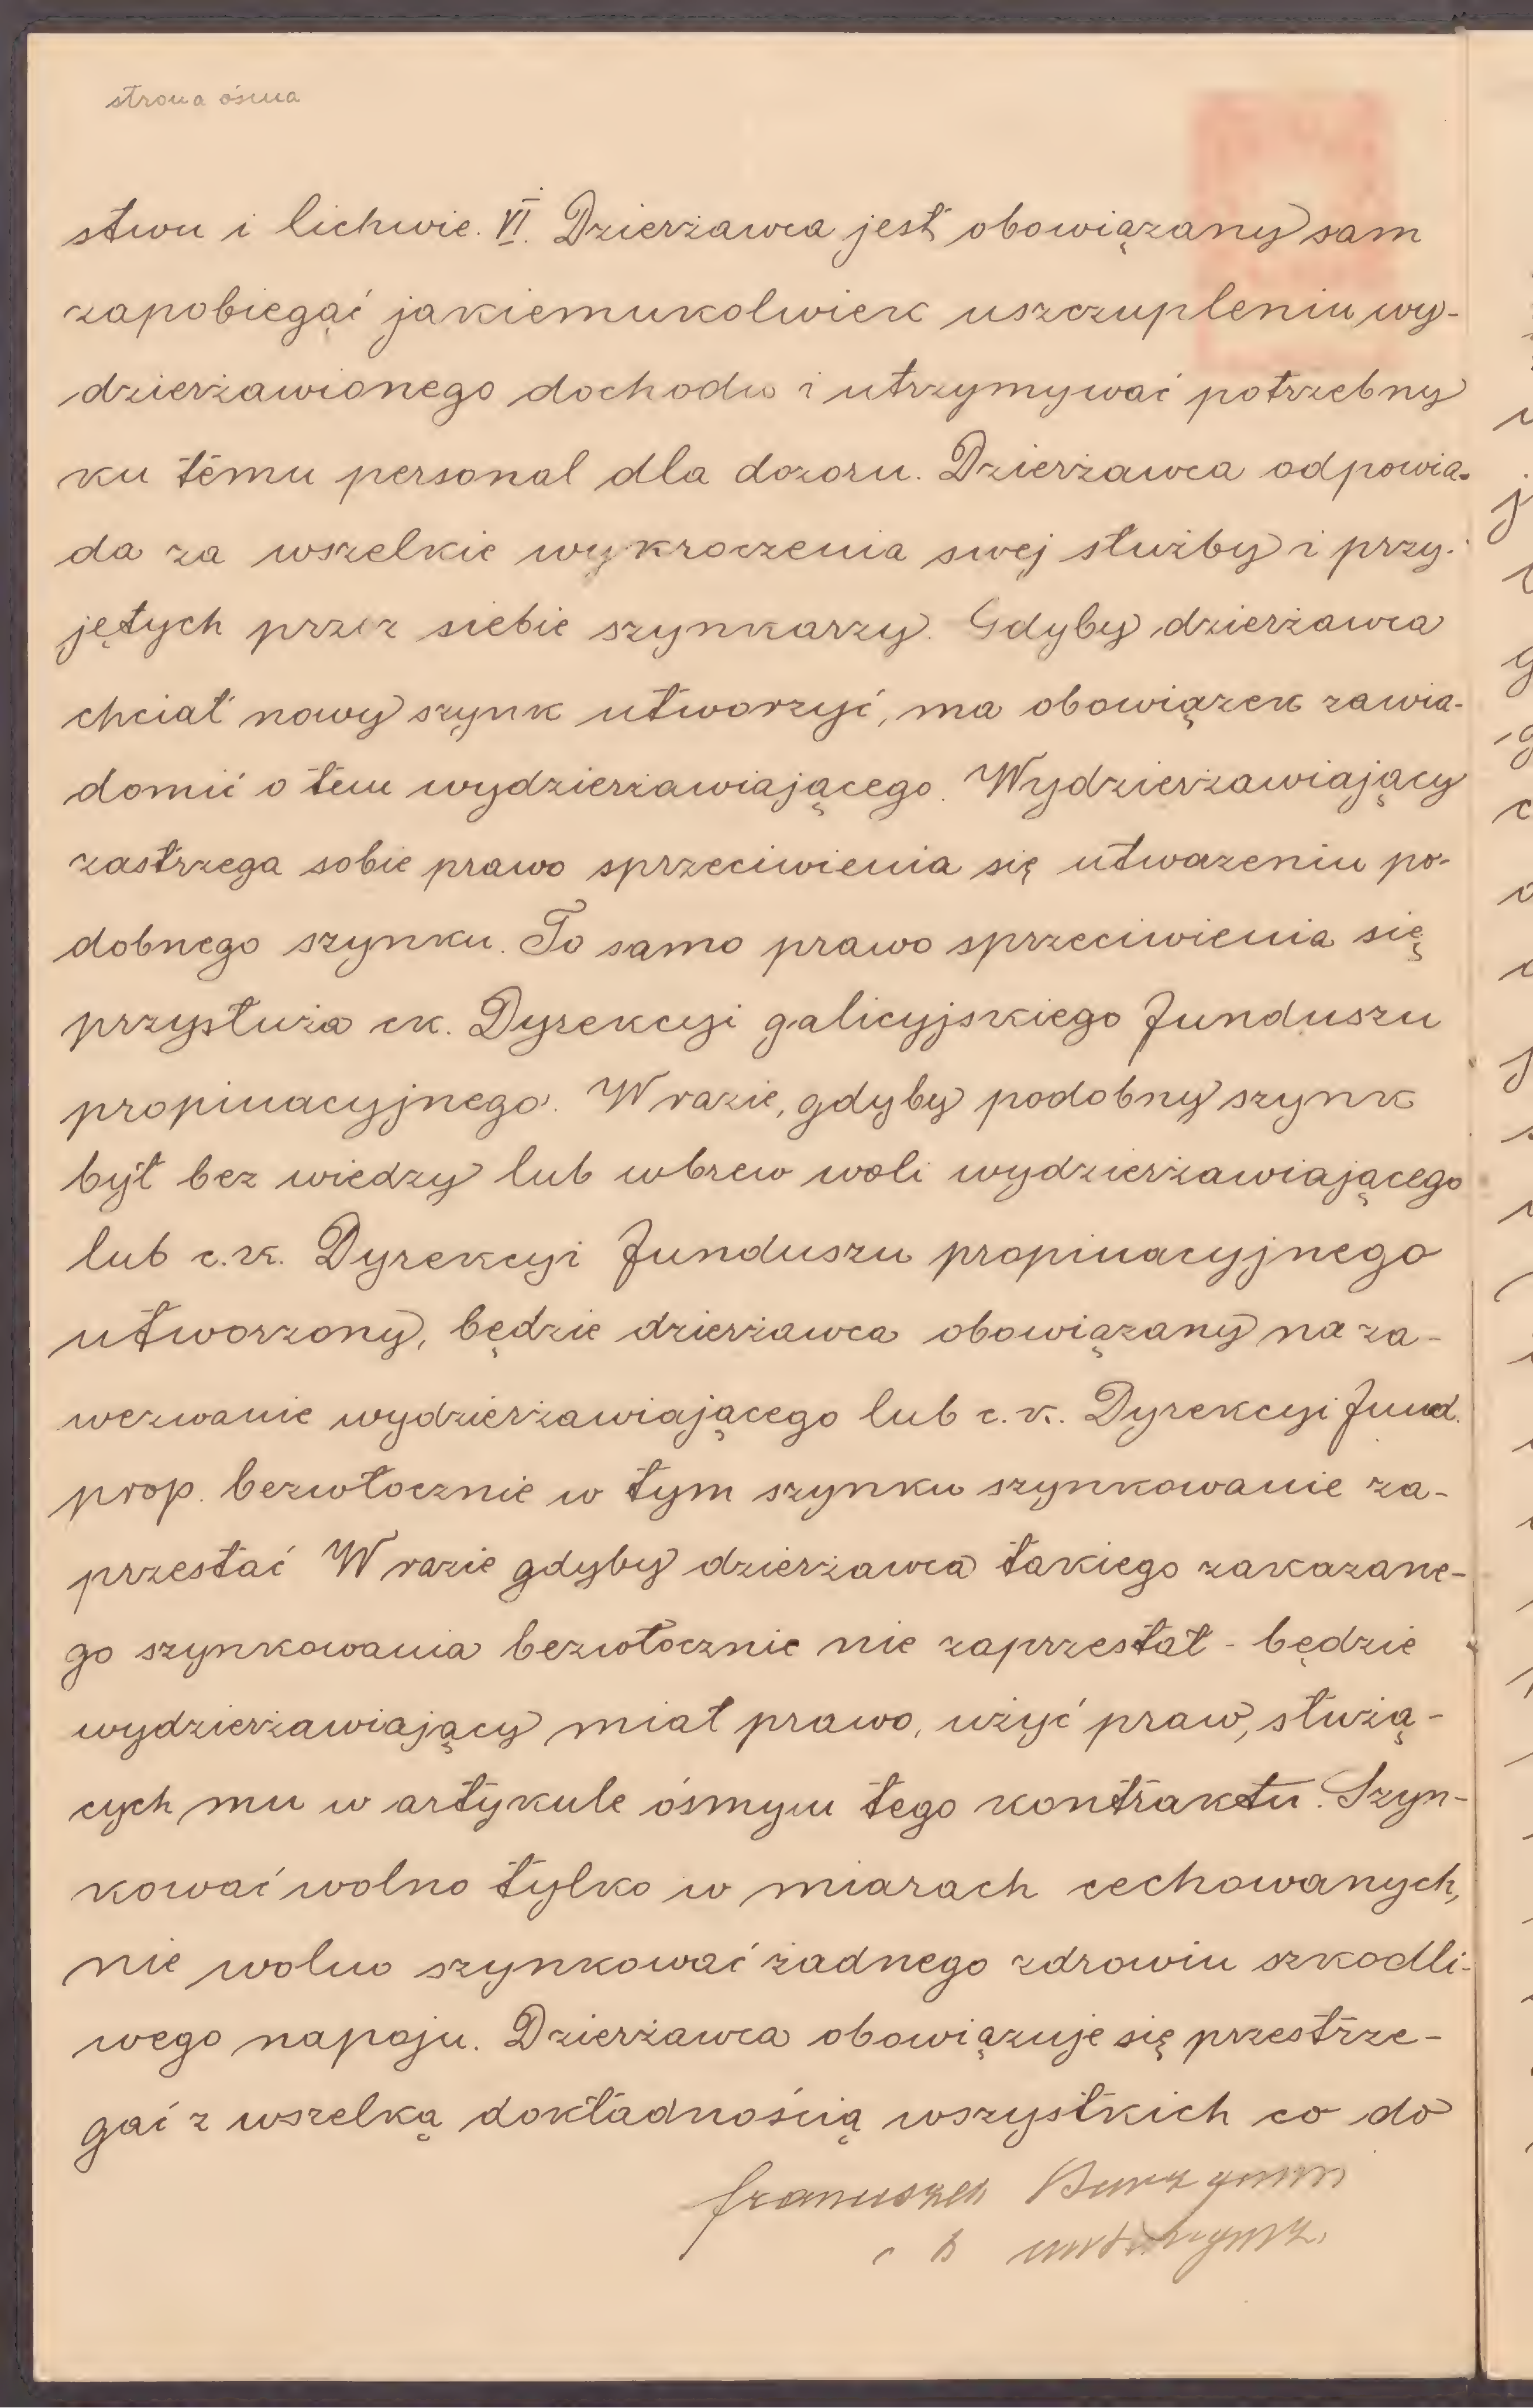 strona ósma
stwu i lichwie. VI. Dzierżawca jest obowiązany sam
zapobiegać jakiemukolwiek uszczupleniu wy-
dzierżawionego dochodu i utrzymywać potrzebny
ku temu personal dla dozoru. Dzierżawca odpowia-
da za wszelkie wykroczenia swej służby i przy-
jętych przez siebie szynkarzy. Gdyby dzierżawca
chciał nowy szynk utworzyć, ma obowiązek zawia-
domić o tem wydzierżawiającego. Wydzierżawiający
zastrzega sobie prawo sprzeciwienia się utwarzeniu po-
dobnego szynku. To samo prawo sprzeciwienia się
przysłuża ck. Dyrekcyi galicyjskiego funduszu
propinacyjnego. W razie, gdyby podobny szynk
był bez wiedzy lub wbrew woli wydzierżawiającego
lub c.k. Dyrekcyi funduszu propinacyjnego
utworzony, będzie dzierżawca obowiązany na za-
wezwanie wydzierżawiającego lub c.k. Dyrekcyi fund.
prop. bezwłocznie w tym szynku szynkowanie za-
przestać W razie gdyby dzierżawca takiego zakazane-
go szynkowania bezwłocznie nie zaprzestał - będzie
wydzierżawiający miał prawo, użyć praw, służą-
cych mu w artykule ósmym tego kontraktu. Szyn-
kować wolno tylko w miarach cechowanych,
nie wolno szynkować żadnego zdrowiu szkodli-
wego napoju. Dzierżawca obowiązuje się przestrze-
gać z wszelką dokładnością wszystkich co do